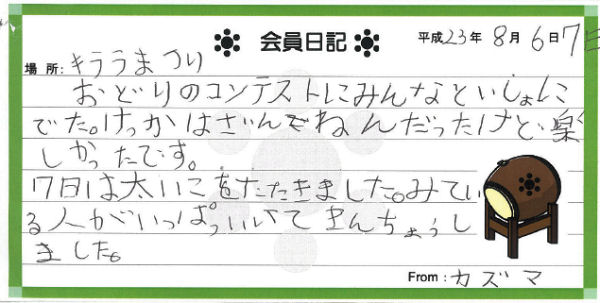 会員日記
平成23年 8月 6日7日
場所：キララまつり
おどりのコンテストにみんなといしょに
でた。けっかはざんでねんだったけど、楽
しかったです。
7日は太いこをたたきました。みてい
る人がいっぱっいいてきんちょうし
ました。
From：カズマ